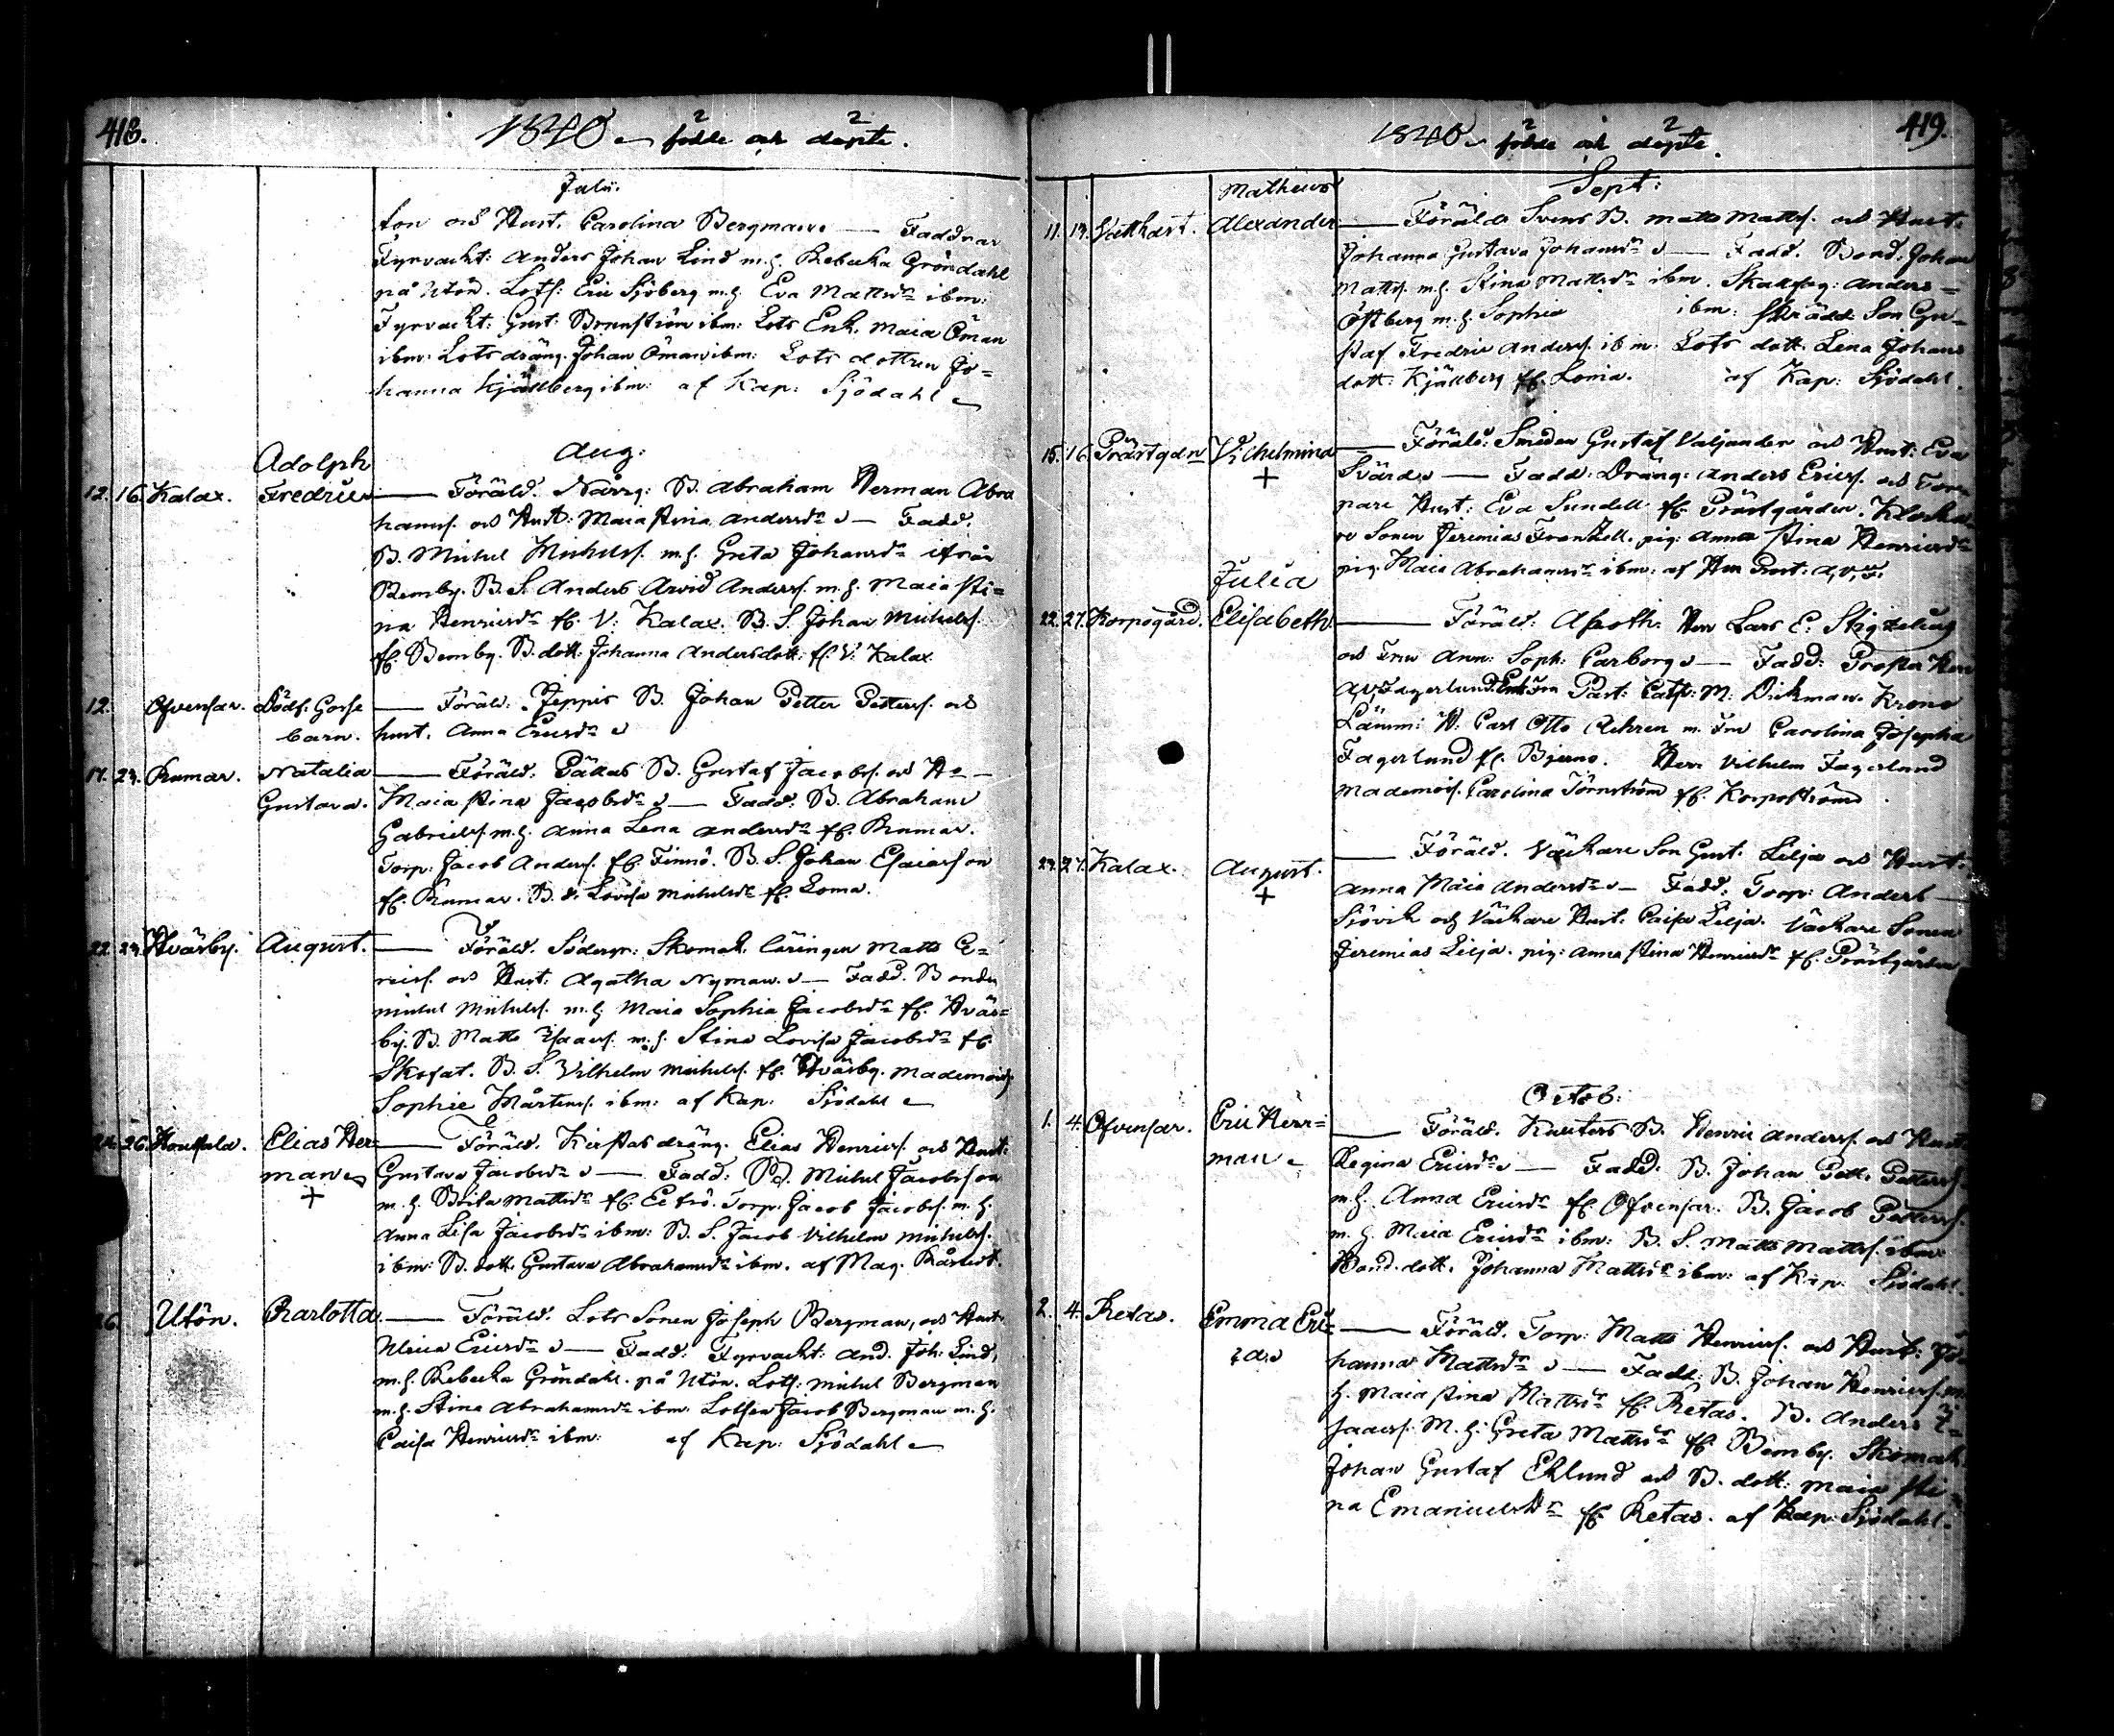 418.
1840 födde och döpte.
Julii.
ton och Hust. Carolina Bergman — Faddrar
Fyrvackt: Anders Johan Lind m.h. Rebecka Gröndahl
på Utön. Lots: Eric Sjöberg m.h. Eva Mattsdr ibm:
Fyrvackt: Gust: Brunström ibm: Lots Enk. Maia Öman
ibm: Lots dräng. Johan Öman ibm: Lots dottren Jo=
hanna Kjällberg ibm: af Kap: Sjödahl
Aug:
Adolph
12. 16. Kalax. Fredric — Föräld. Norrg: B. Abraham Herman Abra
hamss. och Hust: Maia Stina Andersdr — Fadd.
B. Michel Michelss. m.h. Greta Johansdr ifrån
Bemby. B. S. Anders Arvid Anderss. m.h. Maia Sti=
na Henricsdr fr. V: Kalax. B. S. Johan Michelss.
fr. Bemby. B. dott: Johanna Andersdott: fr. V. Kalax.
12. Ofvensar. Dödf: Gosse — Föräld: Jeppis B. Johan Petter Petterss. och
barn. hust. Anna Ericsdr
17. 23. Rumar. Natalia — Föräld. Pällas B. Gustaf Jacobss. och H
Gustava. Maia Stina Jacobsdr — Fadd. B. Abraham
Gabrielss. m.h. Anna Lena Andersdr fr. Rumar.
Torp: Jacob Anderss. fr. Finnö. B. S. Johan Esaiasson
fr. Rumar. B. d. Lovisa Michelsdr fr. Loma.
22. 23. Hväsby. August. — Föräld. Södergr: Skomak. läringen Matts E=
ricss. och Hust: Agatha Nyman. — Fadd. Bonden
Michel Michelss. m.h. Maia Sophia Jacobsdr fr. Hväs=
by. B. Matts Isaacss. m.h. Stina Lovisa Jacobsdr fr.
B. S. Vilhelm Michelss. fr. Hväsby. Mademois.
Sophie Mårtenss. ibm: af Kap: Sjödahl
26. Elias Her= — Föräld. dräng. Elias Henricss. och Hust:
man Gustava Jacobsdr — Fadd: Bd. Michel Jacobsson
+ m.h. Brita Mattsdr fr. Torp: Jacob Jacobss. m.h.
Anna Lisa Jacobsdr ibm: B. S. Jacob Vilhelm Michelss.
ibm: B. dott. Gustava Abrahamsdr ibm. af Mag.
26. Utön. Charlotta. — Föräld. Lots Sonen Joseph Bergman, och Hust:
Ulrica Ericsdr — Fadd: Fyrvackt: And. Joh: Lind,
m.h. Rebecka Gröndahl. på Utön. Lots: Michel Bergman
m.h. Stina Abrahamsdr ibm: Lotsen Jacob Bergman m.h.
Caisa Henricsdr ibm: af Kap: Sjödahl
419.
1840 födde och döpte.
Sept:
Matheus
11. 14. Alexander — Föräld: Svens B. Matts Mattss. och Hust:
Johanna Gustava Johansdr — Fadd. Bond. Johan
Mattss. m.h. Stina Mattsdr ibm. Anders
Östberg m.h. Sophia ibm: Skrädd: Son Gu=
staf Fredric Anderss. ibm: Lots dott. Lena Johans
dott: Kjällberg fr. Loma. af Kap: Sjödahl.
15. 16. Prästgdn Vilhelmina — Föräld: Smeden Gustaf Valjander och Hust: Eva
+ Svärd — Fadd: Dräng: Anders Ericss. och Tor=
pare Hust: Eva Sundell fr. Prästgården. Klocka=
re Sonen Jeremias Frondell. pig: Anna Stina Henricsdr
pig. Maia Abrahamsdr ibm: af Herr Prost: A, v, F.
Julia
22. 27. Korpogård. Elisabeth — Föräld: Apoth: Herr Lars E: Stigzelius
och Fru Ann: Soph: Carborg — Fadd: Prosten Herr
A, v, Fagerlund. Enk Fru Past: Cath: M: Dickman. Krono
Länm: H. Carl Otto Rehren m. Fru Carolina Josepha
Fagerlund fr. Bjerno. Herr Vilhelm Fagerlund
Mademois. Carolina Törnström fr. Korpoström.
23. 27. Kalax. August. — Föräld. Väckare Son Gust. Lilja och Hust:
+ Anna Maia Andersdr — Fadd: Torp: Anders
Sjövik och Väckare Hust. Caisa Lilja. Väckare Sonen
Jeremias Lilja. pig: Anna Stina Henricsdr fr. Prästgården
Octob:
1. 4. Ofvensar. Eric Herr= — Föräld. Knuters B. Henric Anderss. och Hust:
man Regina Ericsdr — Fadd: B. Johan Pett. Petterss.
m.h. Anna Ericsdr fr. Ofvensar. B. Jacob Petterss.
m.h. Maia Ericsdr ibm: B. S. Matts Mattss. ibm
Bond. dott. Johanna Mattsdr ibm: af Kap: Sjödahl.
2. 4. Retas. Emma Eri= — Föräld. Torp: Matts Henricss. och Hust: Jo=
ca hanna Mattsdr — Fadd: B. Johan Henricss. m.
h. Maia Stina Mattsdr fr. Retas. B. Anders I=
saacss: M.h. Greta Mattsdr fr. Bemby. Skomak.
Johan Gustaf Eklund och B. dott: Maia Sti
na Emanuelsdr fr. Retas. af Kap: Sjödahl.